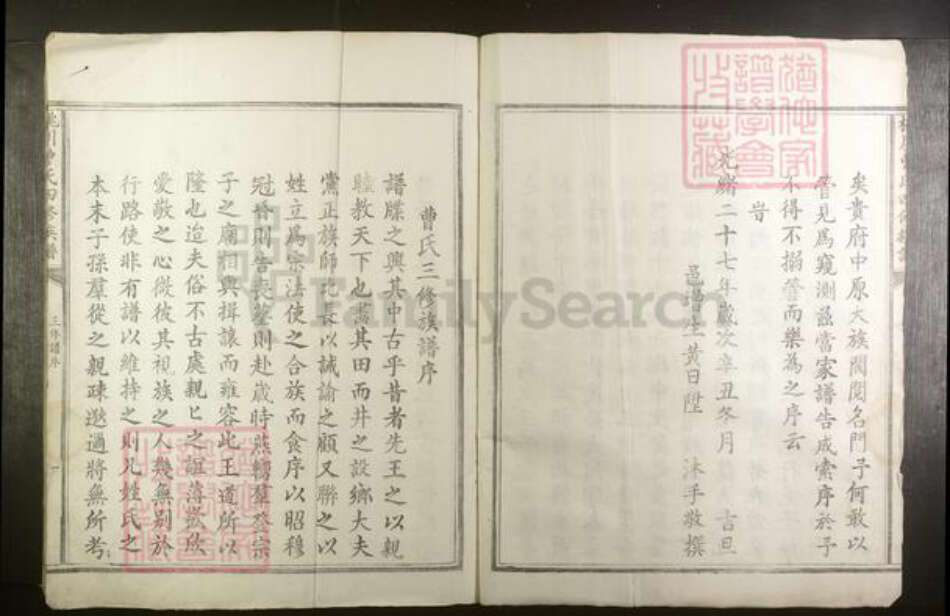 矣貴府中原大族閥閱名門予何敢以
管見爲窺測茲當家譜告成索序於予
不得不搦管而樂為之序云
旹
光緒二十七年歲次辛丑冬月 吉旦
邑增生黃日陞 沐手敬撰
曹氏三修族譜序
譜牒之興其中古乎昔者先王之以親
睦教天下也畫其田而井之設鄉大夫
黨正族師比 以誡諭之顧又聯之以
姓立爲宗法使之合族而食序以昭穆
冠昏則告喪葬則赴歲時燕 羣祭宗
子之廟相與揖讓而雍容此王道所以
隆也迨夫俗不古處親匕之誼薄 欣
愛敬之心微彼其視族之人幾無别於
行路使非有譜以維持之則凡姓氏之
本末子孫羣從之親疎邇遐將無所考
三修譜序
猶他家
譜學會
收藏
FamilySearch